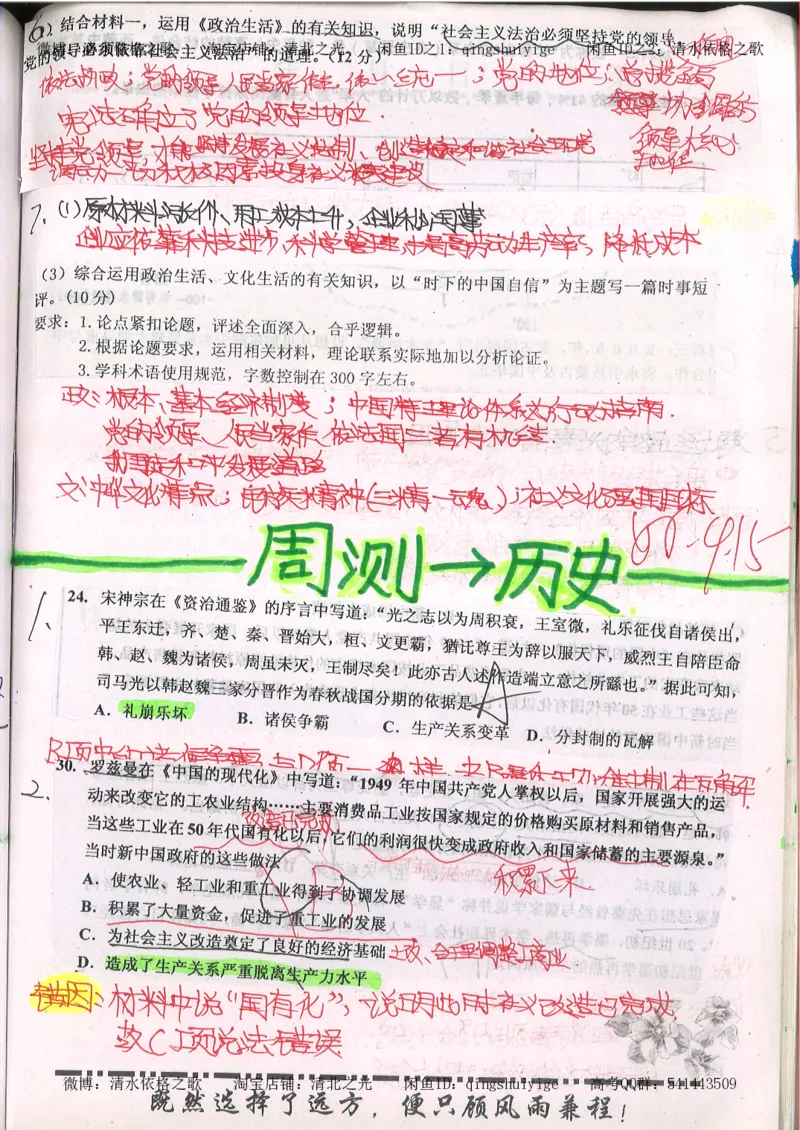 6.
结合材料一，运用《政治生活》的有关知识，说明“社会主义法治必须坚持党的领导，
党的领导必须依靠社会主义法治”的道理。(12分)
微博：清水依格之歌 淘宝店铺：清北之光 闲鱼ID之1：qingshuiyige 闲鱼ID之2：清水依格之歌
依法执政；党的领导 人民当家作主 依 统一；党的地位：总揽全局
领导 协调各方
宪法 确立了党的领导地位.
领导核心
坚持党领导,才能 发展社会主义 、创造稳定和谐社会环境
调动一切积极因素投身社会主义 建设
7. (1) 原材料 涨价、用工成本上升，企业利润薄
企业应依靠科技进步,科学管理,提高劳动生产率，降低成本
（3）综合运用政治生活、文化生活的有关知识，以“时下的中国自信”为主题写一篇时事短
评。(10分)
要求：1.论点紧扣论题，评述全面深入，合乎逻辑。
2.根据论题要求，运用相关材料，理论联系实际地加以分析论证。
3.学科术语使用规范，字数控制在300字左右。
政：根本、基本 制度；中国特 理论体系 行动指南.
党的领导、人民当家作主、依法治国三者有机统一
我国走和平发展道路
文：中华文化特点；民族精神 ；社 文化强国目标
周测→历史
4.15
1.
24. 宋神宗在《资治通鉴》的序言中写道：“光之志以为周积衰，王室微，礼乐征伐自诸侯出，
平王东迁，齐、楚、秦、晋始大，桓、文更霸，犹讬尊王为辞以服天下，威烈王自陪臣命
韩、赵、魏为诸侯，周虽未灭，王制尽矣！此亦古人述作造端立意之所繇也。”据此可知，
司马光以韩赵魏三家分晋作为春秋战国分期的依据是
A．礼崩乐坏 B．诸侯争霸 C．生产关系变革 D．分封制的瓦解
2.
30. 罗兹曼在《中国的现代化》中写道：“1949 年中国共产党人掌权以后，国家开展强大的运
动来改变它的工农业结构……主要消费品工业按国家规定的价格购买原材料和销售产品，
改造已完成
当这些工业在 50 年代国有化以后，它们的利润很快变成政府收入和国家储蓄的主要源泉。”
当时新中国政府的这些做法
积累 来.
A．使农业、轻工业和重工业得到了协调发展
B．积累了大量资金，促进了重工业的发展
C．为社会主义改造奠定了良好的经济基础 土改、合理调整工商业
D．造成了生产关系严重脱离生产力水平
错因：材料中说“国有化”，说明此时社会主义改造已完成，
故C项说法错误
微博：清水依格之歌 淘宝店铺：清北之光 闲鱼ID：qingshuiyige 高考QQ群：541443509
既然选择了远方，便只顾风雨兼程！